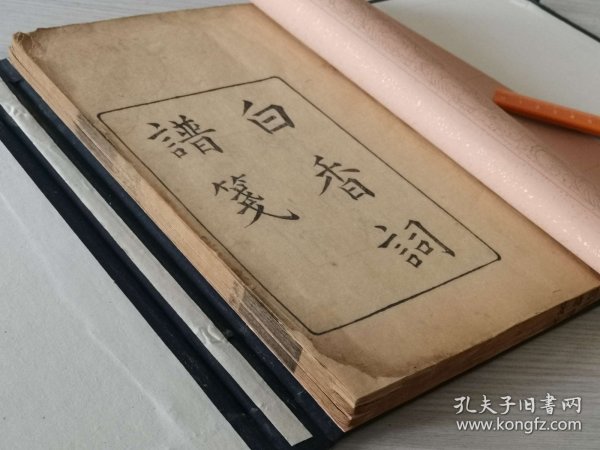 白香詞
譜箋
孔夫子旧书网
www.kongfz.com